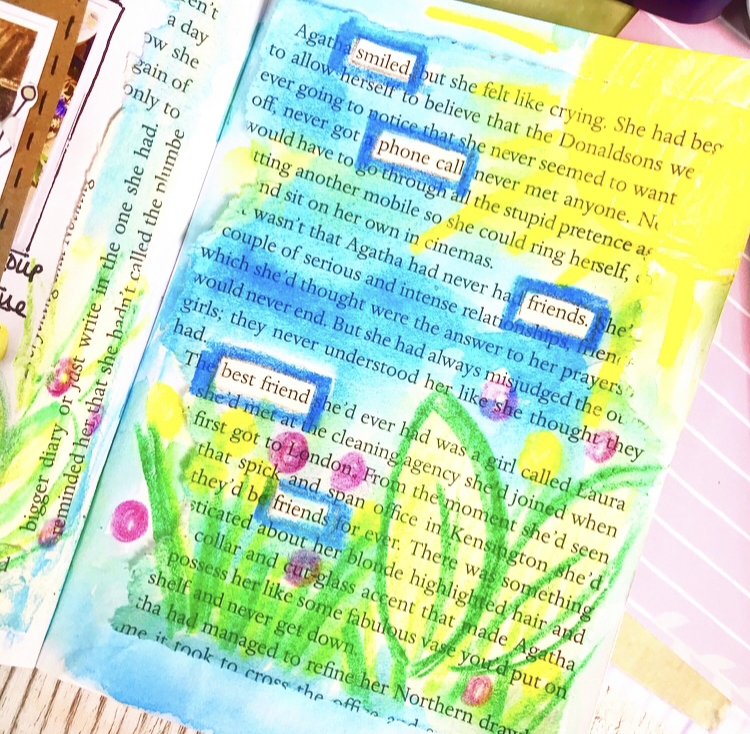 en't
a day
ow she
gain of
only to
bigger diary or just write in the one she had.
reminded her that she hadn't called the plumbe
Agatha smiled but she felt like crying. She had beg
to allow herself to believe that the Donaldsons we
ever going to notice that she never seemed to want
off, never got phone call never met anyone. No
would have to go through all the stupid pretence
tting another mobile so she could ring herself,
nd sit on her own in cinemas.
wasn't that Agatha had never had friends. She'
couple of serious and intense relationships
which she'd thought were the answer to her prayers
would never end. But she had always misjudged the
girls; they never understood her like she thought they
had.
The best friend he'd ever had was a girl called Laura
she'd met at the cleaning agency she'd joined when
first got to London. From the moment she'd seen
that spick and span office in Kensington she'd
they'd be friends for ever. There was something
sticated about her blonde highlighted hair and
collar and cut-glass accent that made Agatha
possess her like some fabulous vase you'd put on
shelf and never get down.
tha had managed to refine her Northern
me it took to cross the office and